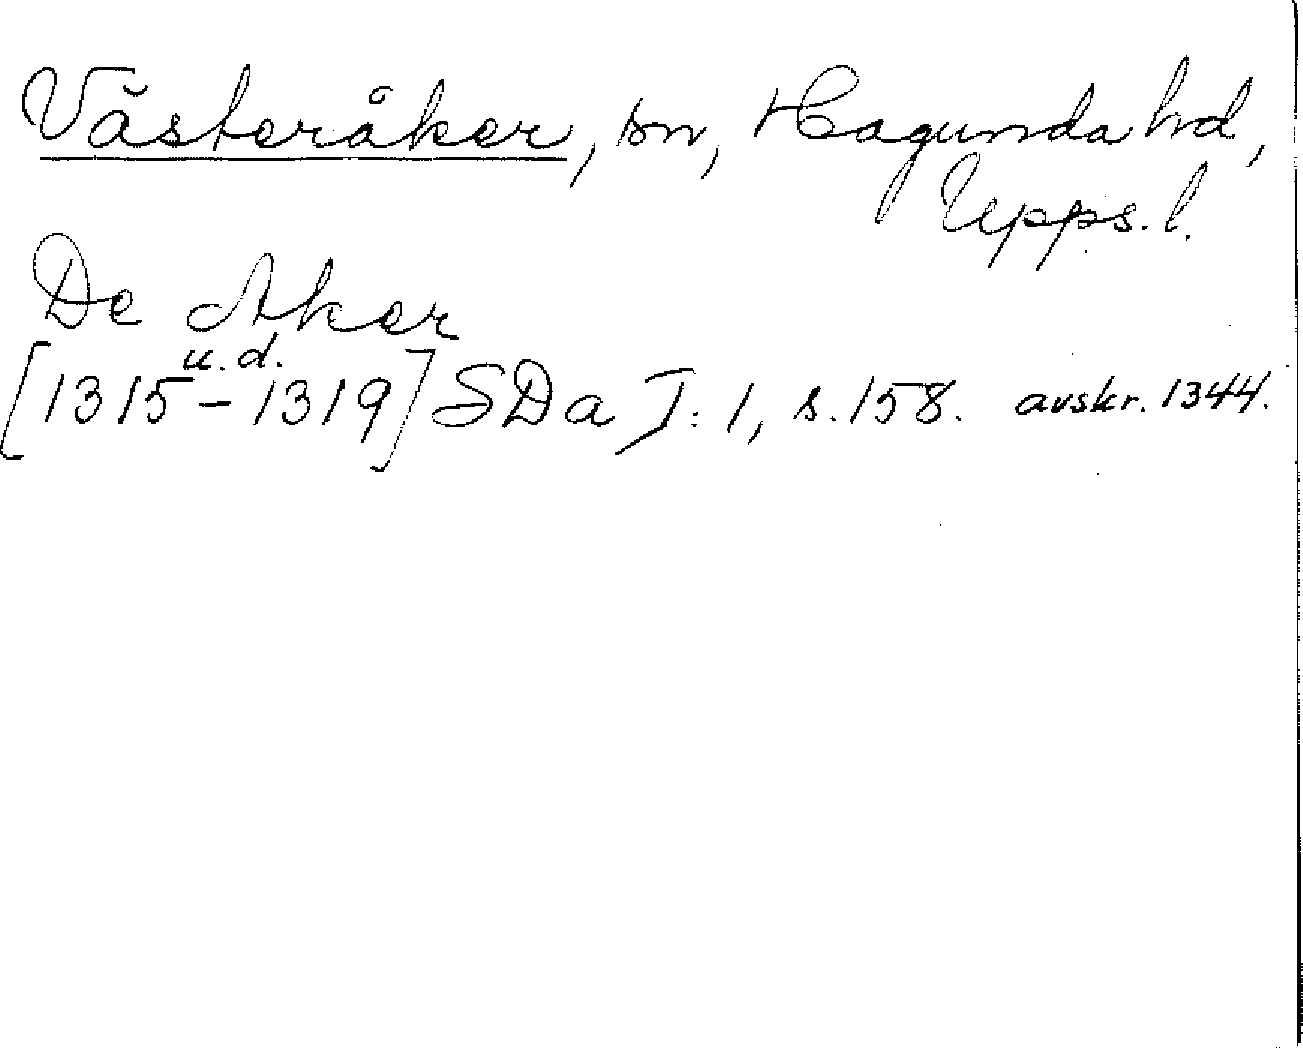 Västeråker, sn, Hagunda hd,
Upps. l.
De Aker
u. d.
[1315-1319] SDa I: 1, s. 158. avskr. 1344.